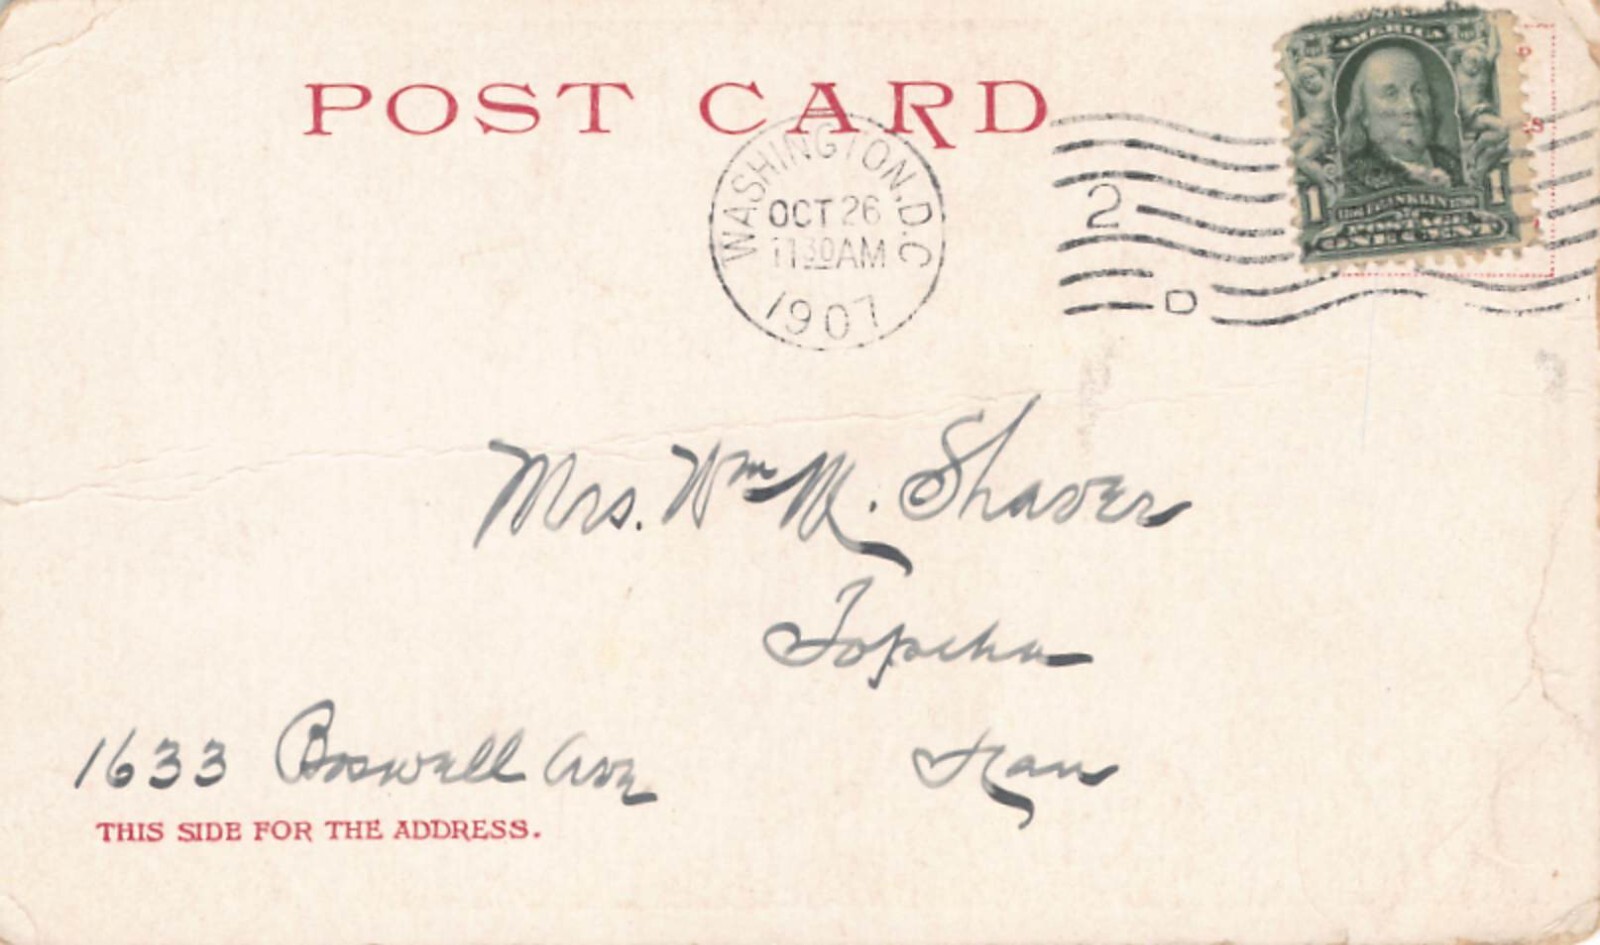 POST CARD
WASHINGTON, D.C.
OCT 26
1130AM
1907
2
D
AMERICA
1 FRANKLIN 1
ONE CENT
Mrs. Wm M. Shaver
Topeka
Kan
1633 Boswell Ave
THIS SIDE FOR THE ADDRESS.